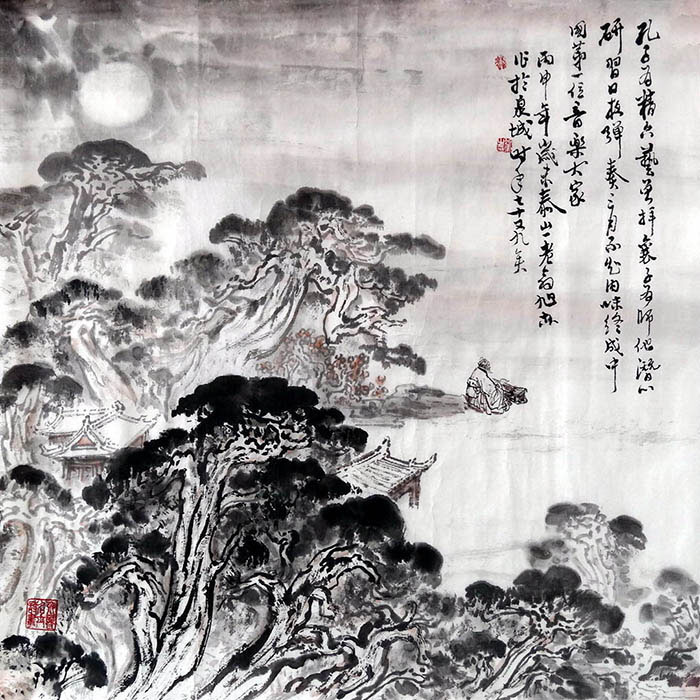 孔子为精六藝曾拜襄子为师他潜心
研習日夜弹奏三月不知肉味终成中
国第一位音樂大家
丙申年歲末泰山一老翁旭
作於泉城时年七十又九矣